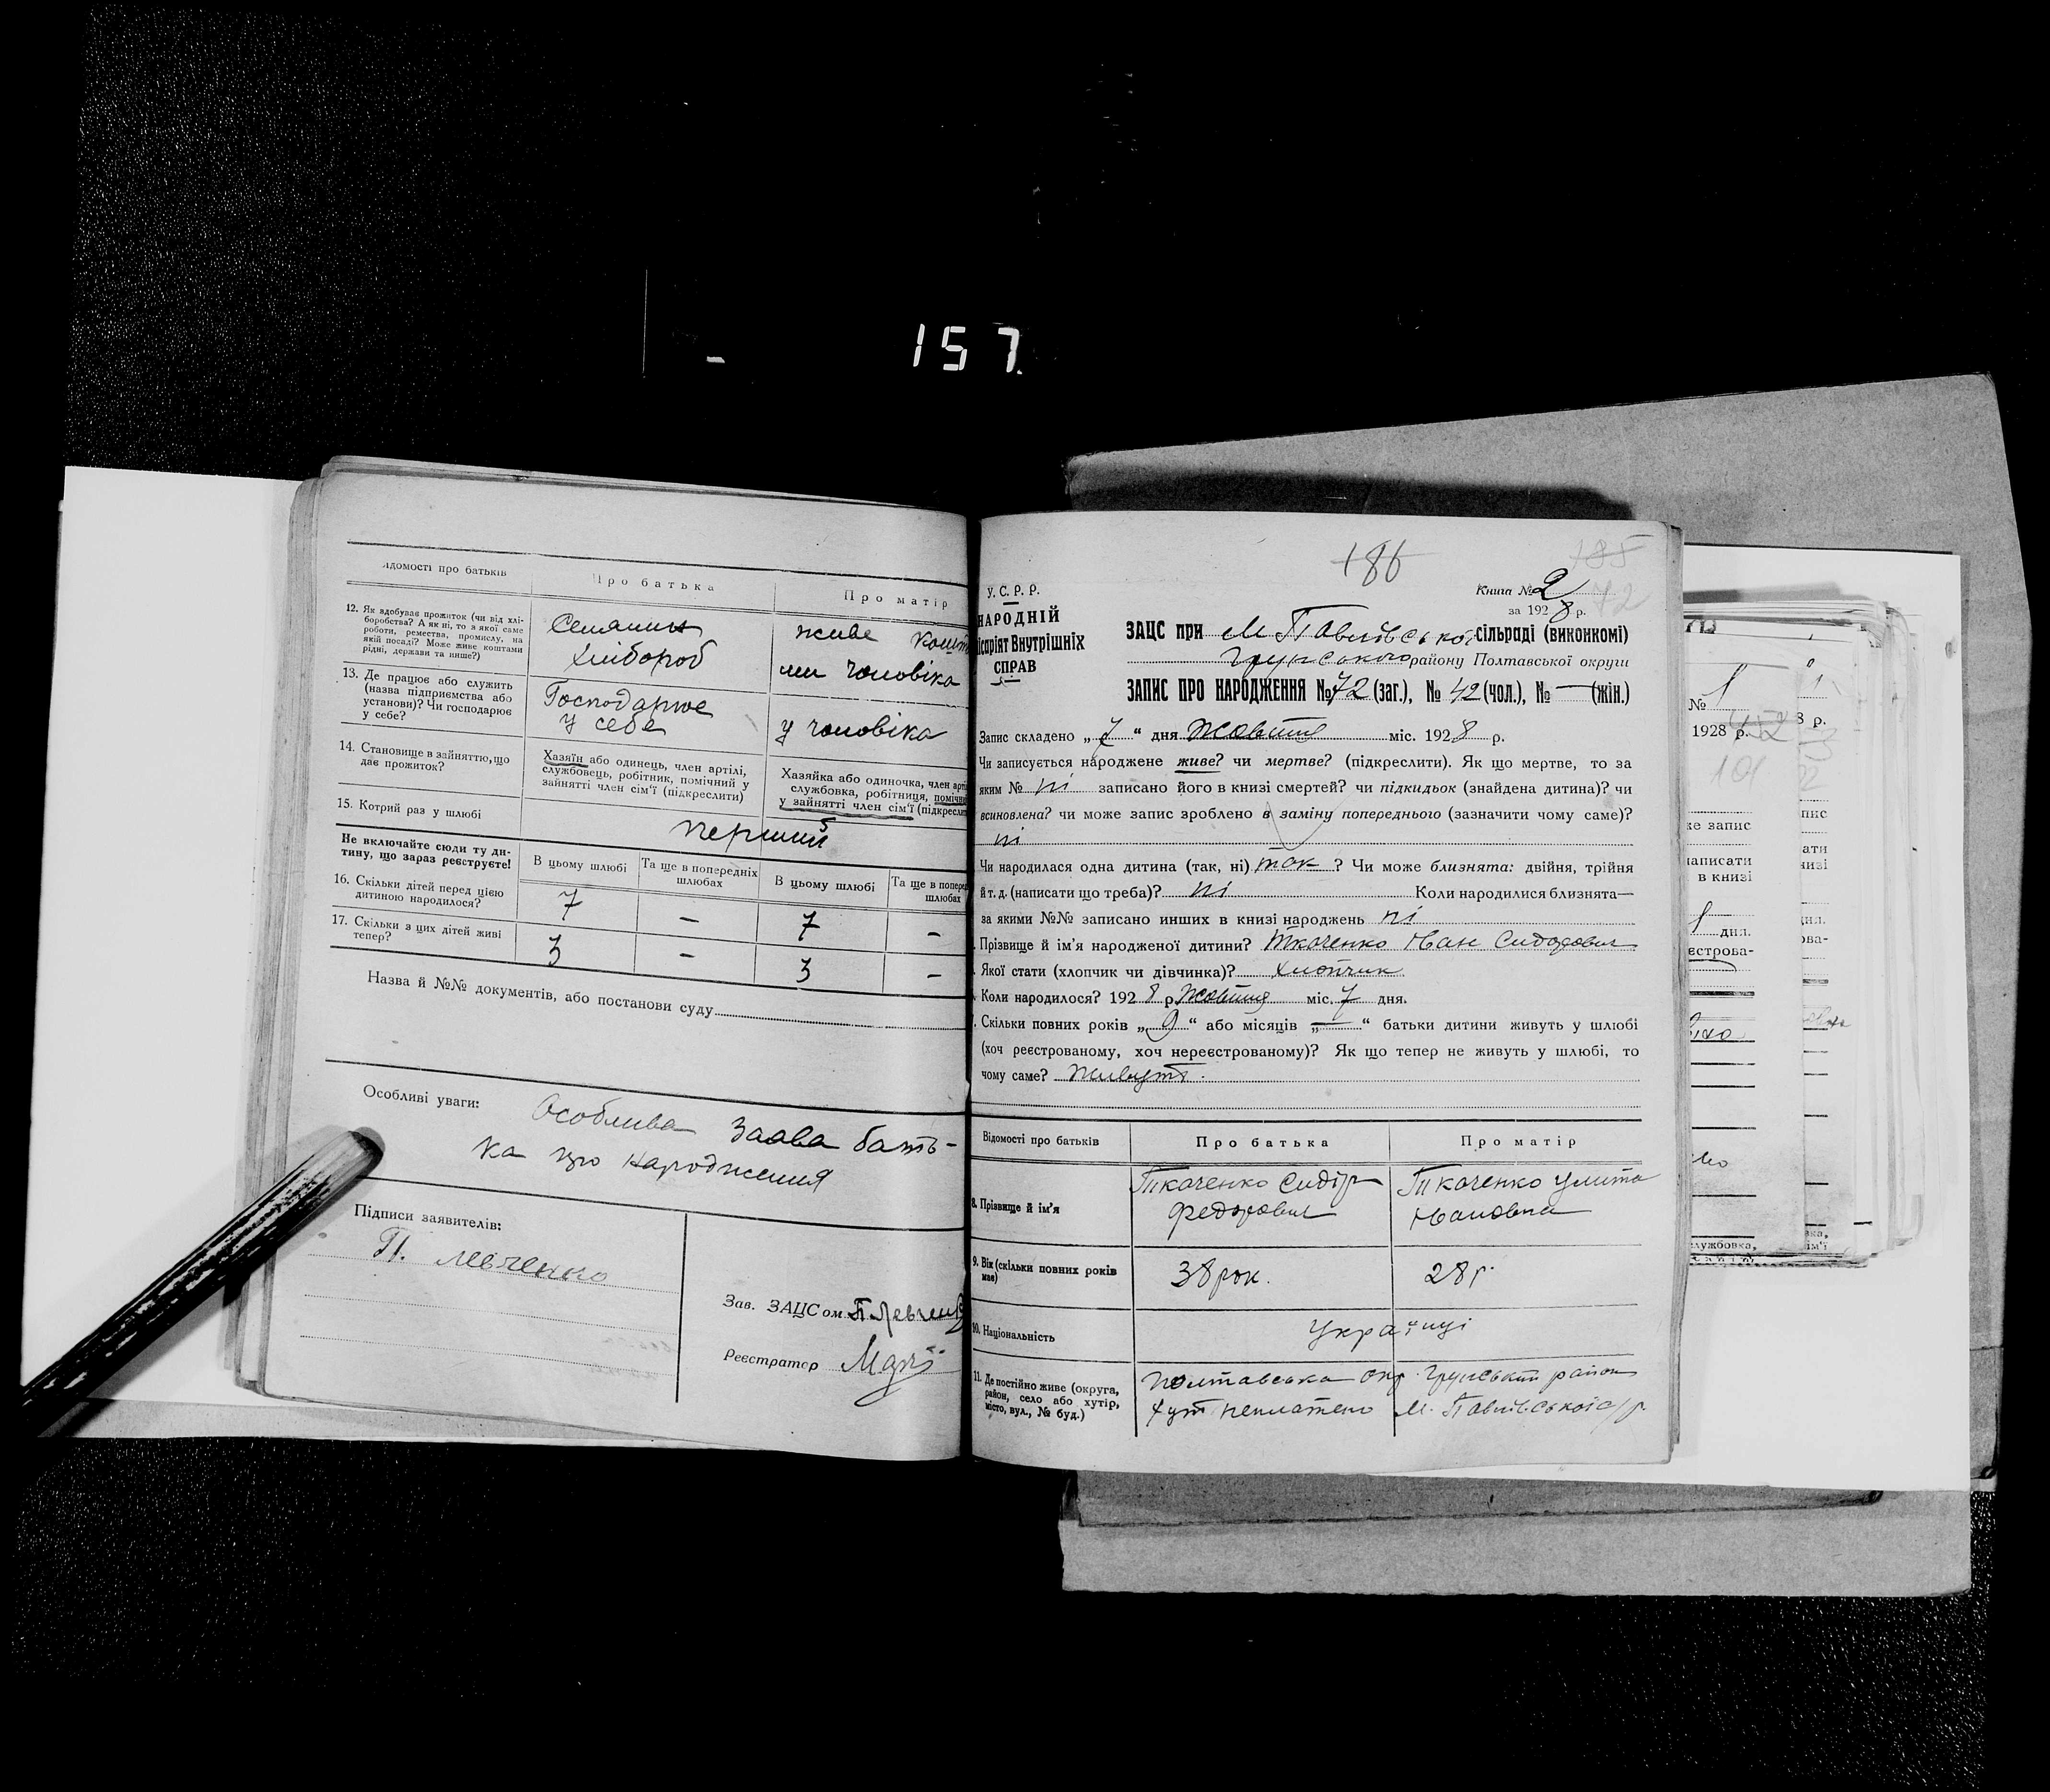 157.
Відомості про батьків
Про батька
Про матір
12. Як здобуває прожиток (чи від хлі-
боробства? А як ні, то з якої саме
роботи, ремества, промислу, на
якій посаді? Може живе коштами
рідні, держави та инше?)
Селянин
Хлібороб
живе кошта
ми чоловіка
13. Де працює або служить
(назва підприємства або
установи)? Чи господарює
у себе?
Господарює
у себе
у чоловіка
14. Становище в зайняттю, що
дає прожиток?
Хазяїн або одинець, член артілі,
службовець, робітник, помічний у
зайнятті член сім'ї (підкреслити)
Хазяйка або одиночка, член арті
службовка, робітниця, помічни
у зайнятті член сім'ї (підкресли
15. Котрий раз у шлюбі
перший
Не включайте сюди ту ди-
тину, що зараз реєструєте!
В цьому шлюбі
Та ще в попередніх
шлюбах
В цьому шлюбі
Та ще в попере
шлюбах
16. Скільки дітей перед цією
дитиною народилося?
7 — 7 –
17. Скільки з цих дітей живі
тепер?
3 — 3 –
Назва й №№ документів, або постанови суду
Особливі уваги:
Особлива Заява бать-
ка про народження
Підписи заявителів:
П. Левченко
Зав. ЗАЦСом П Левченко
Реєстратор
186
185
72
У. С. Р. Р.
НАРОДНІЙ
ісаріят Внутрішніх
СПРАВ
Книга № 2
за 1928 р.
ЗАЦС при М Павлівської сільраді (виконкомі)
Грунського району Полтавської округи
ЗАПИС ПРО НАРОДЖЕННЯ № 72 (заг.), № 42 (чол.), № — (жін.)
Запис складено „7“ дня Жовтня міс. 1928 р.
Чи записується народжене живе? чи мертве? (підкреслити). Як що мертве, то за
яким № ні записано його в книзі смертей? чи підкидьок (знайдена дитина)? чи
всиновлена? чи може запис зроблено в заміну попереднього (зазначити чому саме)?
ні
Чи народилася одна дитина (так, ні) так? Чи може близнята: двійня, трійня
й т. д. (написати що треба)? ні Коли народилися близнята—
за якими №№ записано инших в книзі народжень ні
Прізвище й ім'я народженої дитини? Ткаченко Іван Сидорович
Якої стати (хлопчик чи дівчинка)? хлопчик
Коли народилося? 1928 р Жовтня міс. 7 дня.
Скільки повних років „9“ або місяців „—“ батьки дитини живуть у шлюбі
(хоч реєстрованому, хоч нереєстрованому)? Як що тепер не живуть у шлюбі, то
чому саме? Живуть.
Відомості про батьків
Про батька
Про матір
8. Прізвище й ім'я
Ткаченко Сидір
Федорович
Ткаченко Улита
Івановна
9. Вік (скільки повних років
має)
38 рок.
28 г.
10. Національність
Українці
11. Де постійно живе (округа,
район, село або хутір,
місто, вул., № буд.)
Полтавська окр. Грунський район
хут М. Павлівської с/р.
№ 1
1928 р.
8 р.
101
же запис
написати
в книзі
дня.
єстрова-
службовка,